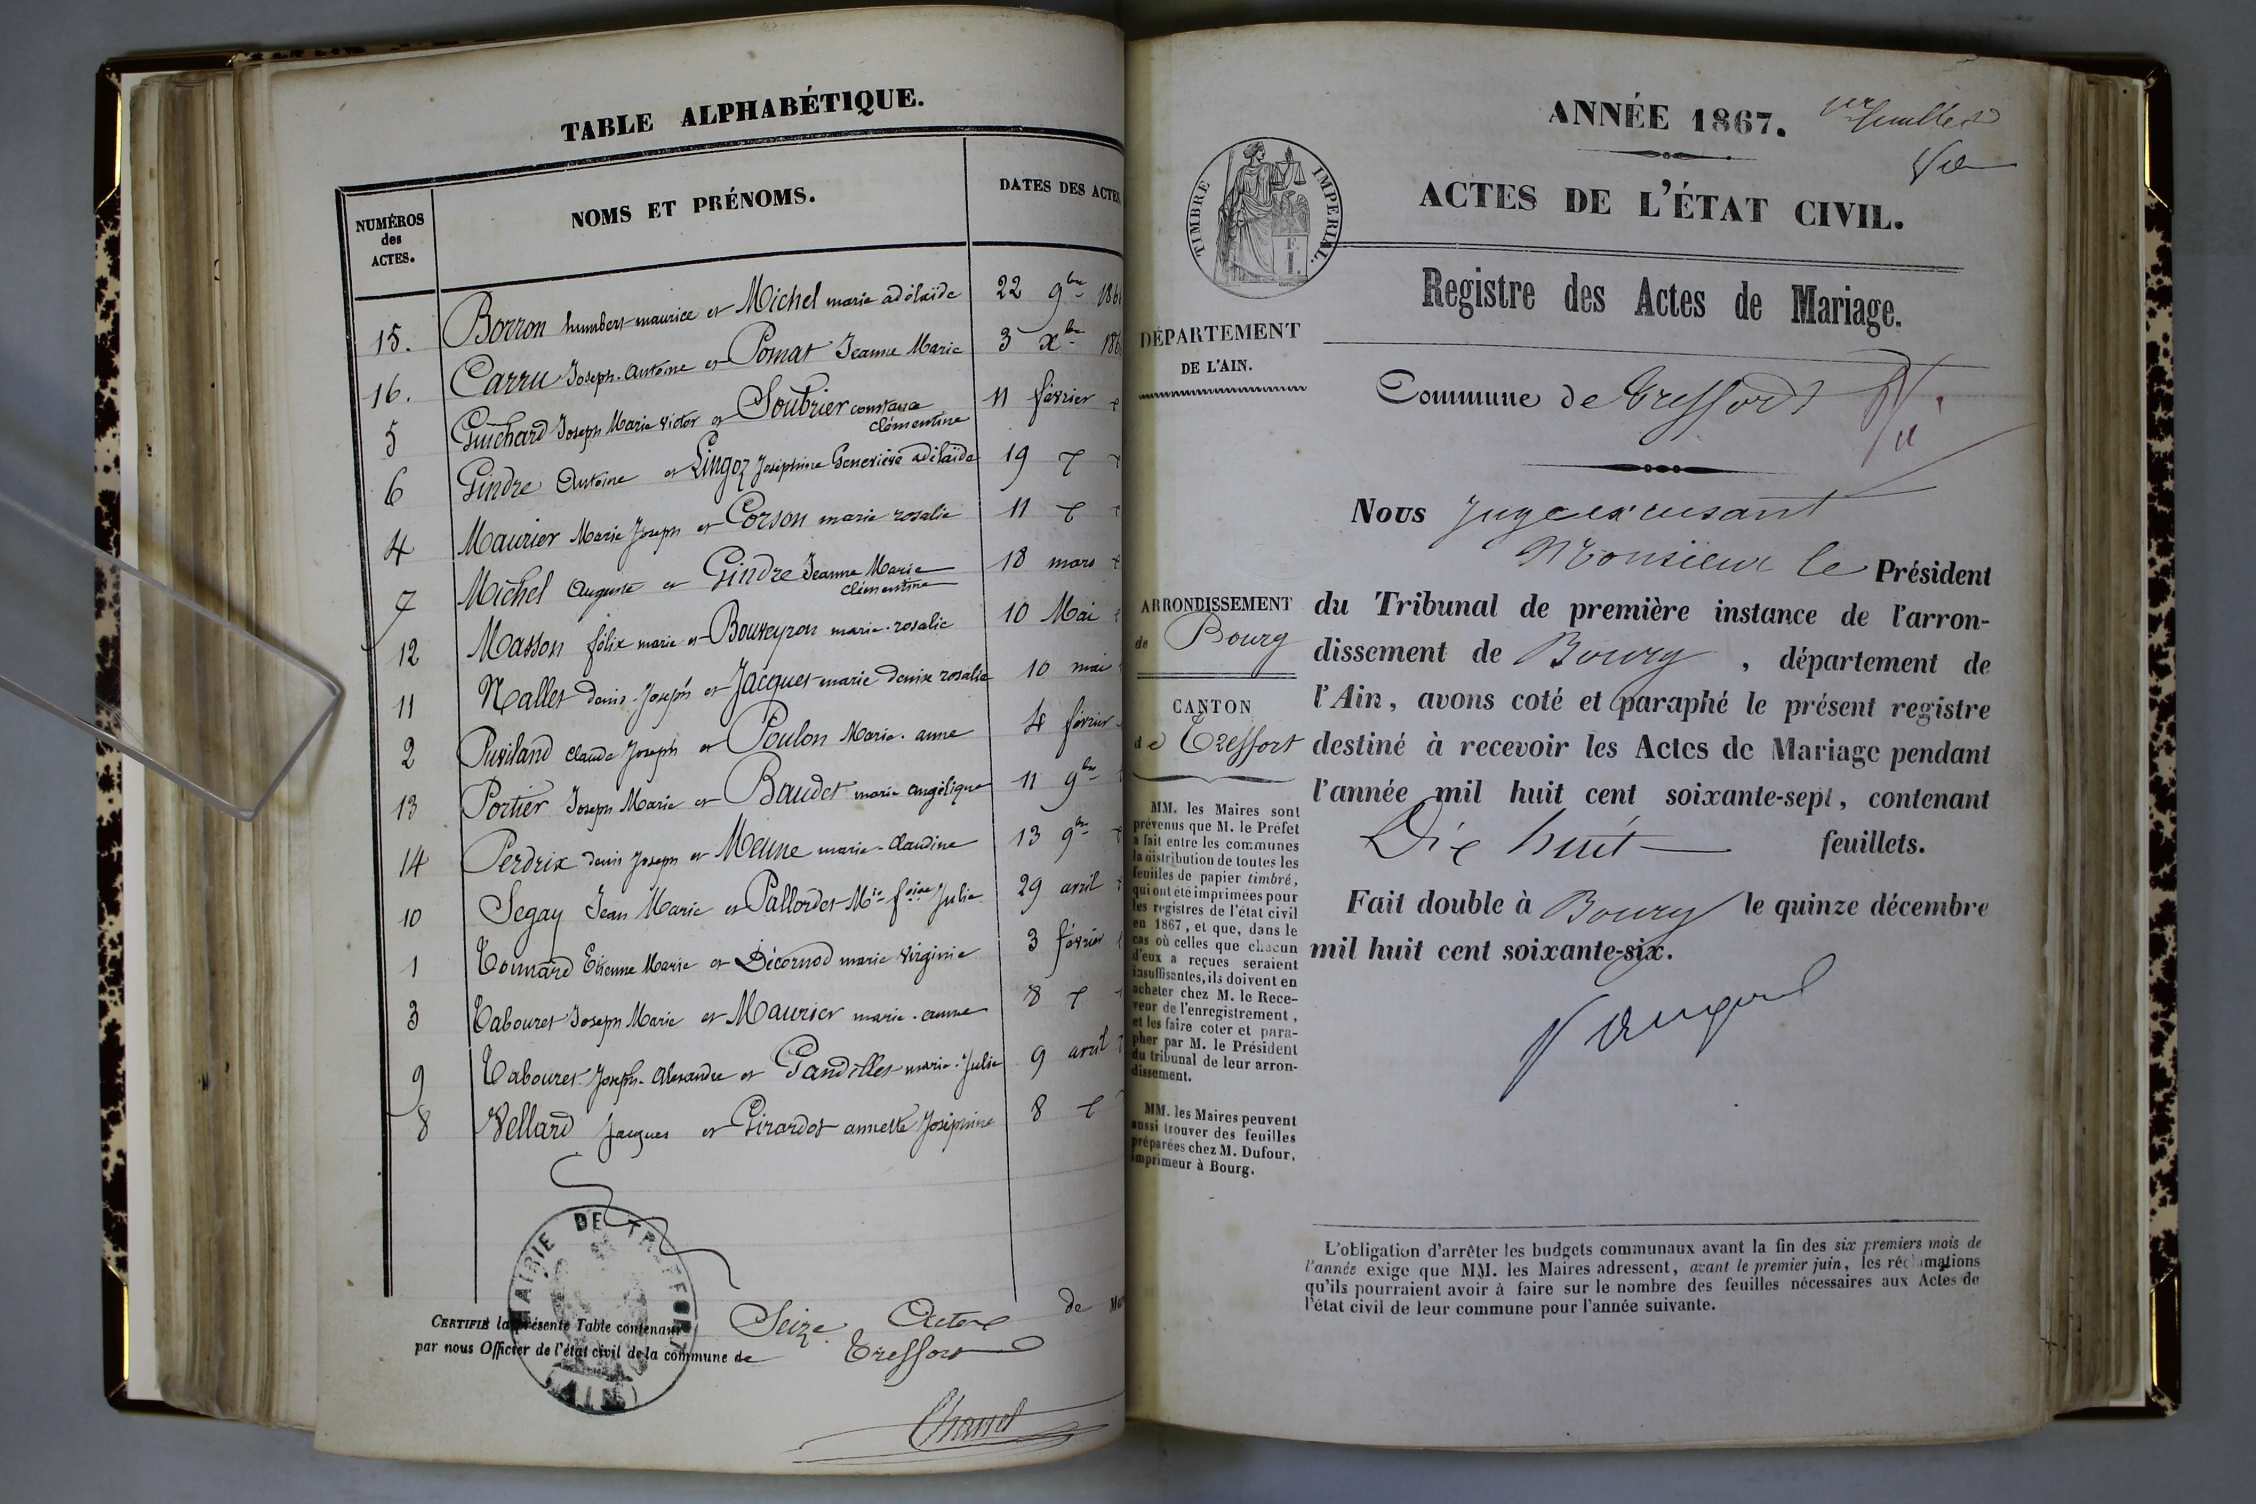 TABLE ALPHABÉTIQUE.
NUMÉROS
des
ACTES.
NOMS ET PRÉNOMS.
DATES DES ACTES
15. Borron humbert maurice et Michel marie adélaïde 22 9bre 186
16. Carru Joseph-Antoine et Pomat Jeanne Marie 3 xbre 186
5 Guichard Joseph Marie Victor et Soubrier constance clémentine 11 février
6 Gindre Antoine et Lingoz Joséphine Geneviève adélaïde 19
4 Maurier Marie Joseph et Corson marie rosalie 11
7 Michel Auguste et Gindre Jeanne Marie clémentine 18 mars
12 Masson félix marie et Bouveyron marie-rosalie 10 Mai
11 Nallet denis-Joseph et Jacquet marie denise rosalie 10 mai
2 Puviland claude Joseph et Poulon Marie-anne 4 février
13 Portier Joseph Marie et Baudet marie angélique 11 9bre
14 Perdrix denis Joseph et Meune marie-claudine 13 9bre
10 Segay Jean Marie et Pallordet Mie foise Julie 29 avril
1 Tournard Etienne Marie et Décornod marie virginie 3 février
3 Tabouret Joseph Marie et Maurier marie-anne 8
9 Tabouret Joseph-Alexandre et Gandillet marie-Julie 9 avril
8 Vellard Jacques et Girardot annette Joséphine 8
MAIRIE DE TREFFORT
(AIN)
CERTIFIÉ la présente Table contenant Seize Actes de
par nous Officier de l'état civil de la commune de Treffort
ANNÉE 1867.
TIMBRE IMPERIAL.
ACTES DE L'ÉTAT CIVIL.
Registre des Actes de Mariage.
DÉPARTEMENT
DE L'AIN.
Commune de Treffort
ARRONDISSEMENT
de Bourg
CANTON
de Treffort
MM. les Maires sont
prévenus que M. le Préfet
a fait entre les communes
la distribution de toutes les
feuilles de papier timbré,
qui ont été imprimées pour
les registres de l'état civil
en 1867, et que, dans le
cas où celles que chacun
d'eux a reçues seraient
insuffisantes, ils doivent en
acheter chez M. le Rece-
veur de l'enregistrement,
et les faire coter et para-
pher par M. le Président
du tribunal de leur arron-
dissement.
MM. les Maires peuvent
aussi trouver des feuilles
préparées chez M. Dufour,
imprimeur à Bourg.
Nous Juge excusant
Monsieur le Président
du Tribunal de première instance de l'arron-
dissement de Bourg, département de
l'Ain, avons coté et paraphé le présent registre
destiné à recevoir les Actes de Mariage pendant
l'année mil huit cent soixante-sept, contenant
Dix huit feuillets.
Fait double à Bourg le quinze décembre
mil huit cent soixante-six.
L'obligation d'arrêter les budgets communaux avant la fin des six premiers mois de
l'année exige que MM. les Maires adressent, avant le premier juin, les réclamations
qu'ils pourraient avoir à faire sur le nombre des feuilles nécessaires aux Actes de
l'état civil de leur commune pour l'année suivante.